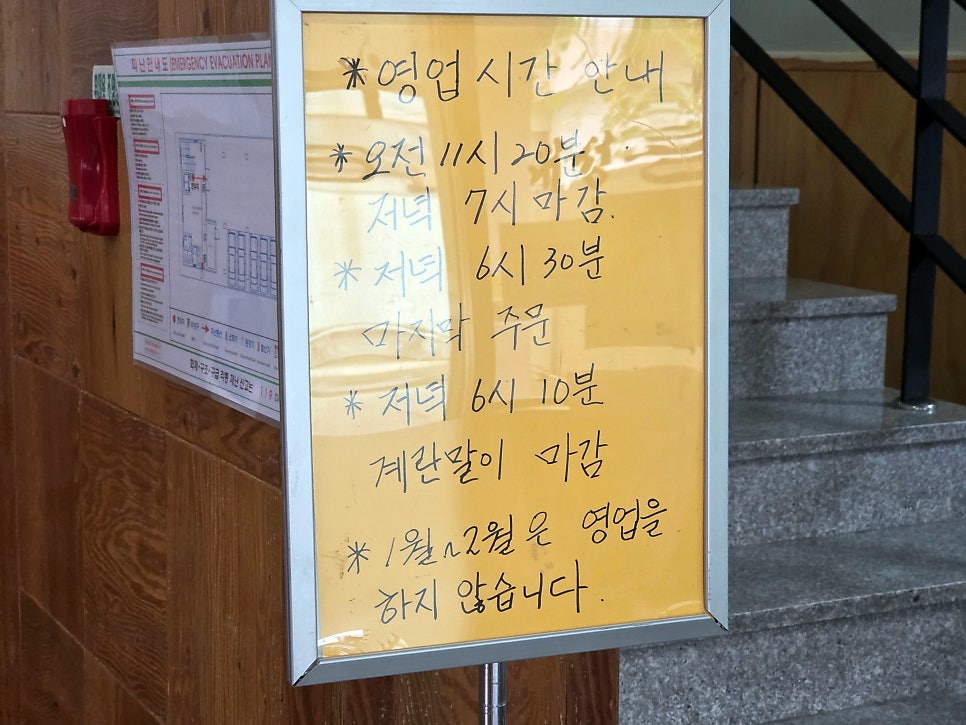 피난안내도 (EMERGENCY EVACUATION PLAN
* 영업시간 안내
* 오전 11시 20분
저녁 7시 마감.
* 저녁 6시 30분
마지막 주문
* 저녁 6시 10분
계란말이 마감
* 1월~2월은 영업을
하지 않습니다.
119